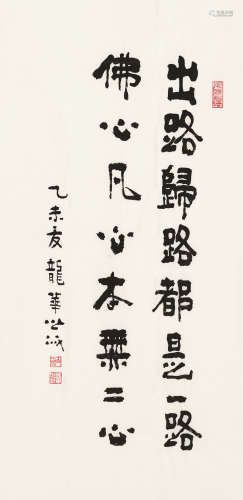 出路歸路都是一路
佛心凡心本無二心
乙未友龍華